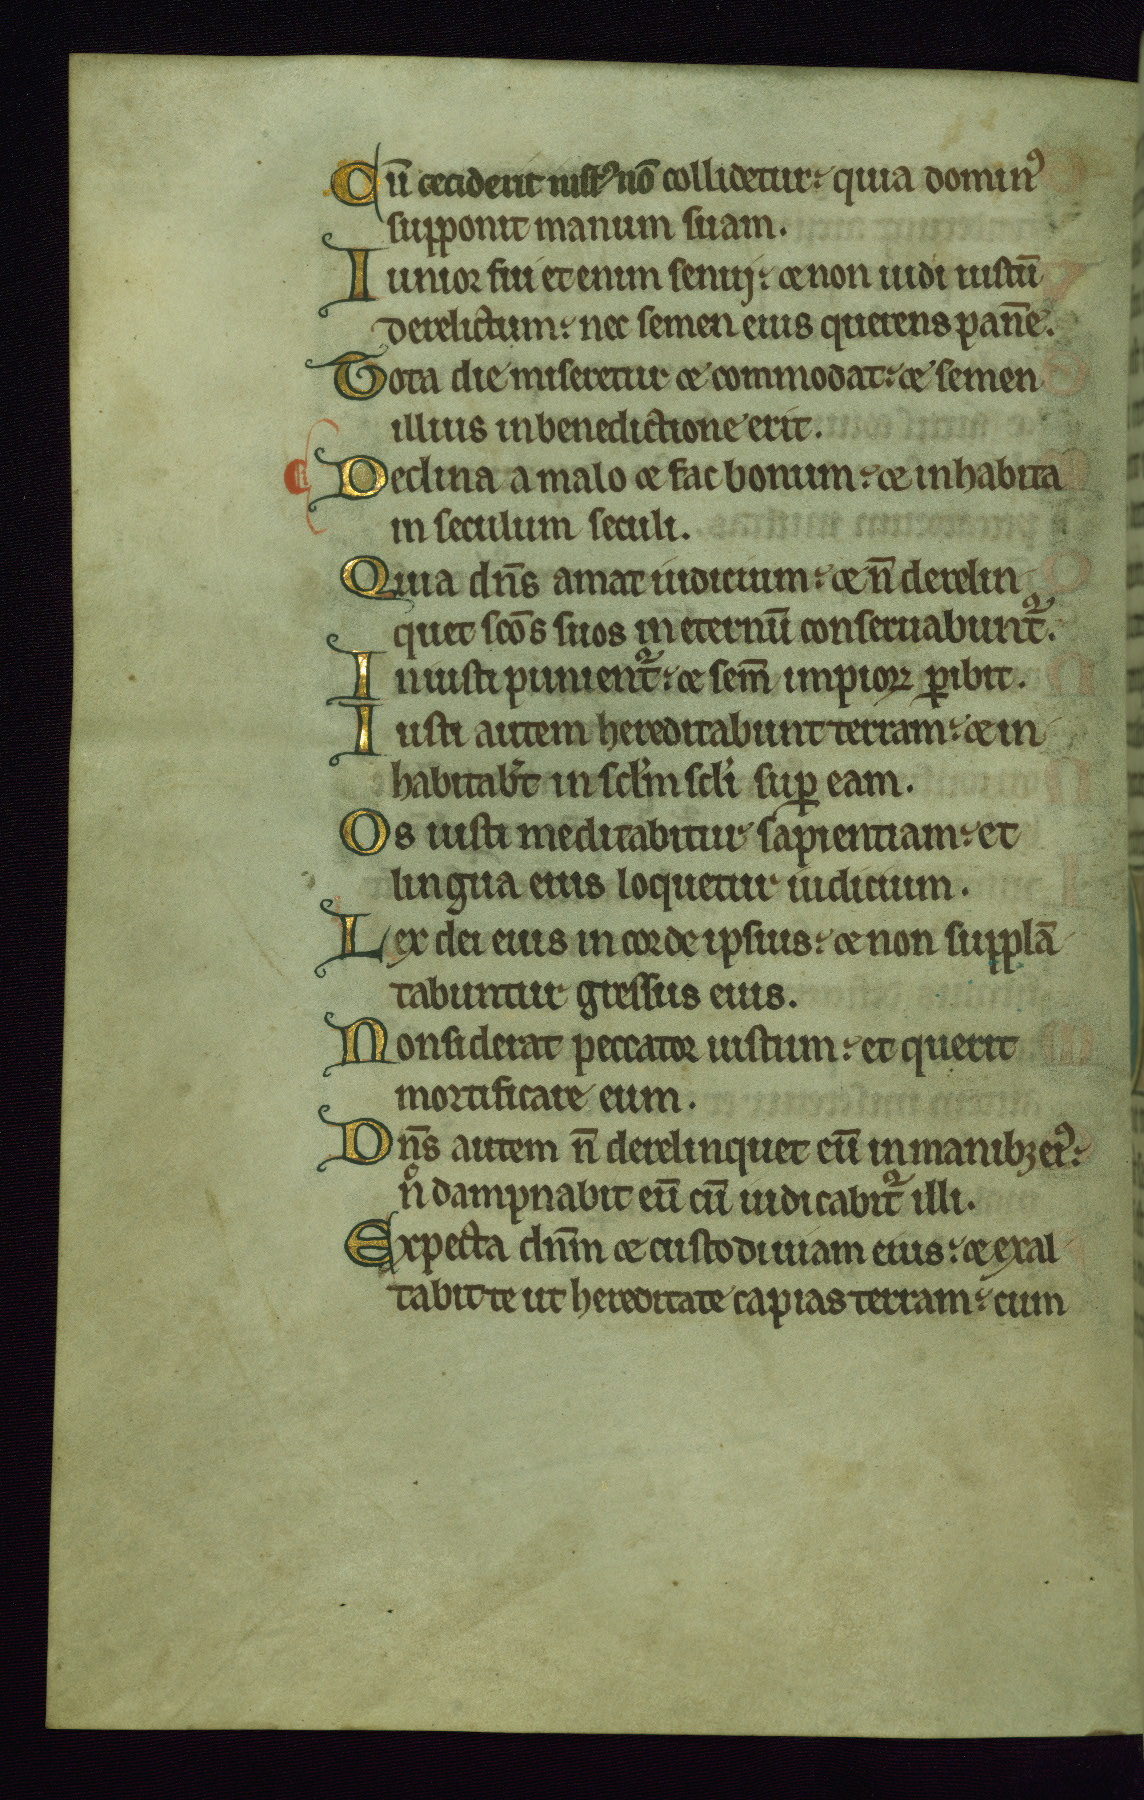 Cū ceciderit iust᷒ nō collidetur: quia domin᷒
supponit manum suam.
Iunior fui et enim senuj: & non uidi iustū
derelictum: nec semen eius querens panē.
Tota die miseretur & commodat: & semen
illius in benedictione erit.
Declina a malo & fac bonum: & inhabita
in seculum seculi.
Quia dn̄s amat iudicium: & n̄ derelin
quet scōs suos in eternū conseruabunt᷑.
Iniusti punient᷑: & sem̄ impioꝝ ꝑibit.
Iusti autem hereditabunt terram: & in
habitab̄t in scl̄m scl̄i suꝑ eam.
Os iusti meditabitur sapientiam: et
lingua eius loquetur iudicium.
Lex dei eius in corde ipsius: & non supplā
tabuntur gressus eius.
Nonsiderat peccator iustum: et querit
mortificare eum.
Dn̄s autem n̄ derelinquet eū in manibꝫ ei᷒:
nͦ dampnabit eū cū iudicabit᷑ illi.
Expecta dn̄m & custodi uiam eius: & exal
tabit te ut hereditate capias terram: cum